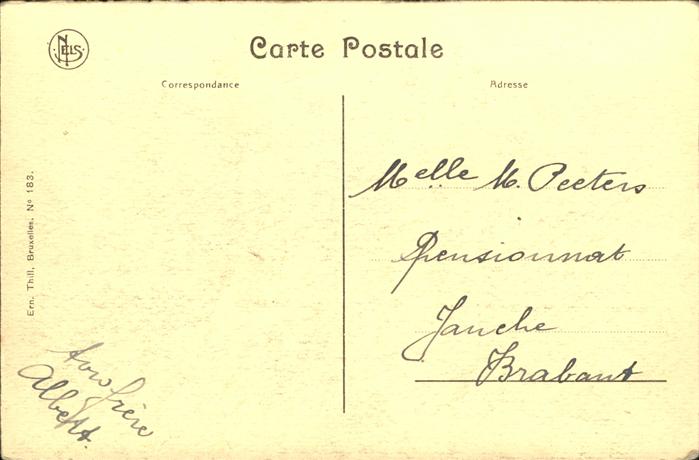 NELS
Carte Postale
Correspondance
Adresse
Ern. Thill, Bruxelles. Nº 183.
Melle M. Peeters
Pensionnat
Jauche
Brabant
ton frère
Albert.